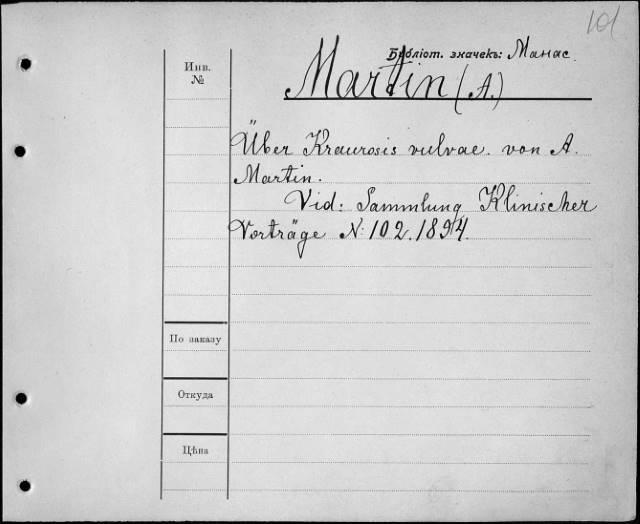 101
Библіот. значекъ: Манас
Инв.
№
Martin (A.)
Über Kraurosis vulvae. von A.
Martin.
Vid: Sammlung Klinischer
Vorträge N: 102. 1894.
По заказу
Откуда
Цѣна